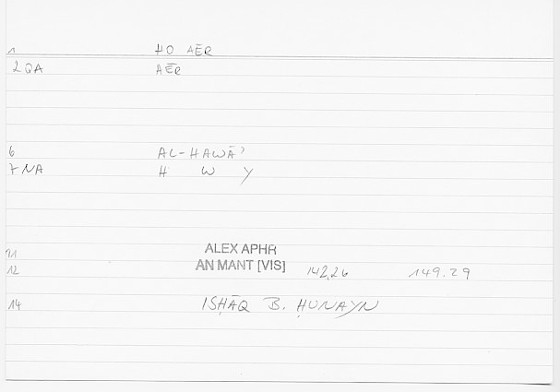 1 HO AĒR
2 QA AĒR
6 AL-HAWĀʾ
7 NA H W Y
11 ALEX APHR
12 AN MANT [VIS] 142,26 149.29
14 ISḤĀQ B. ḤUNAYN